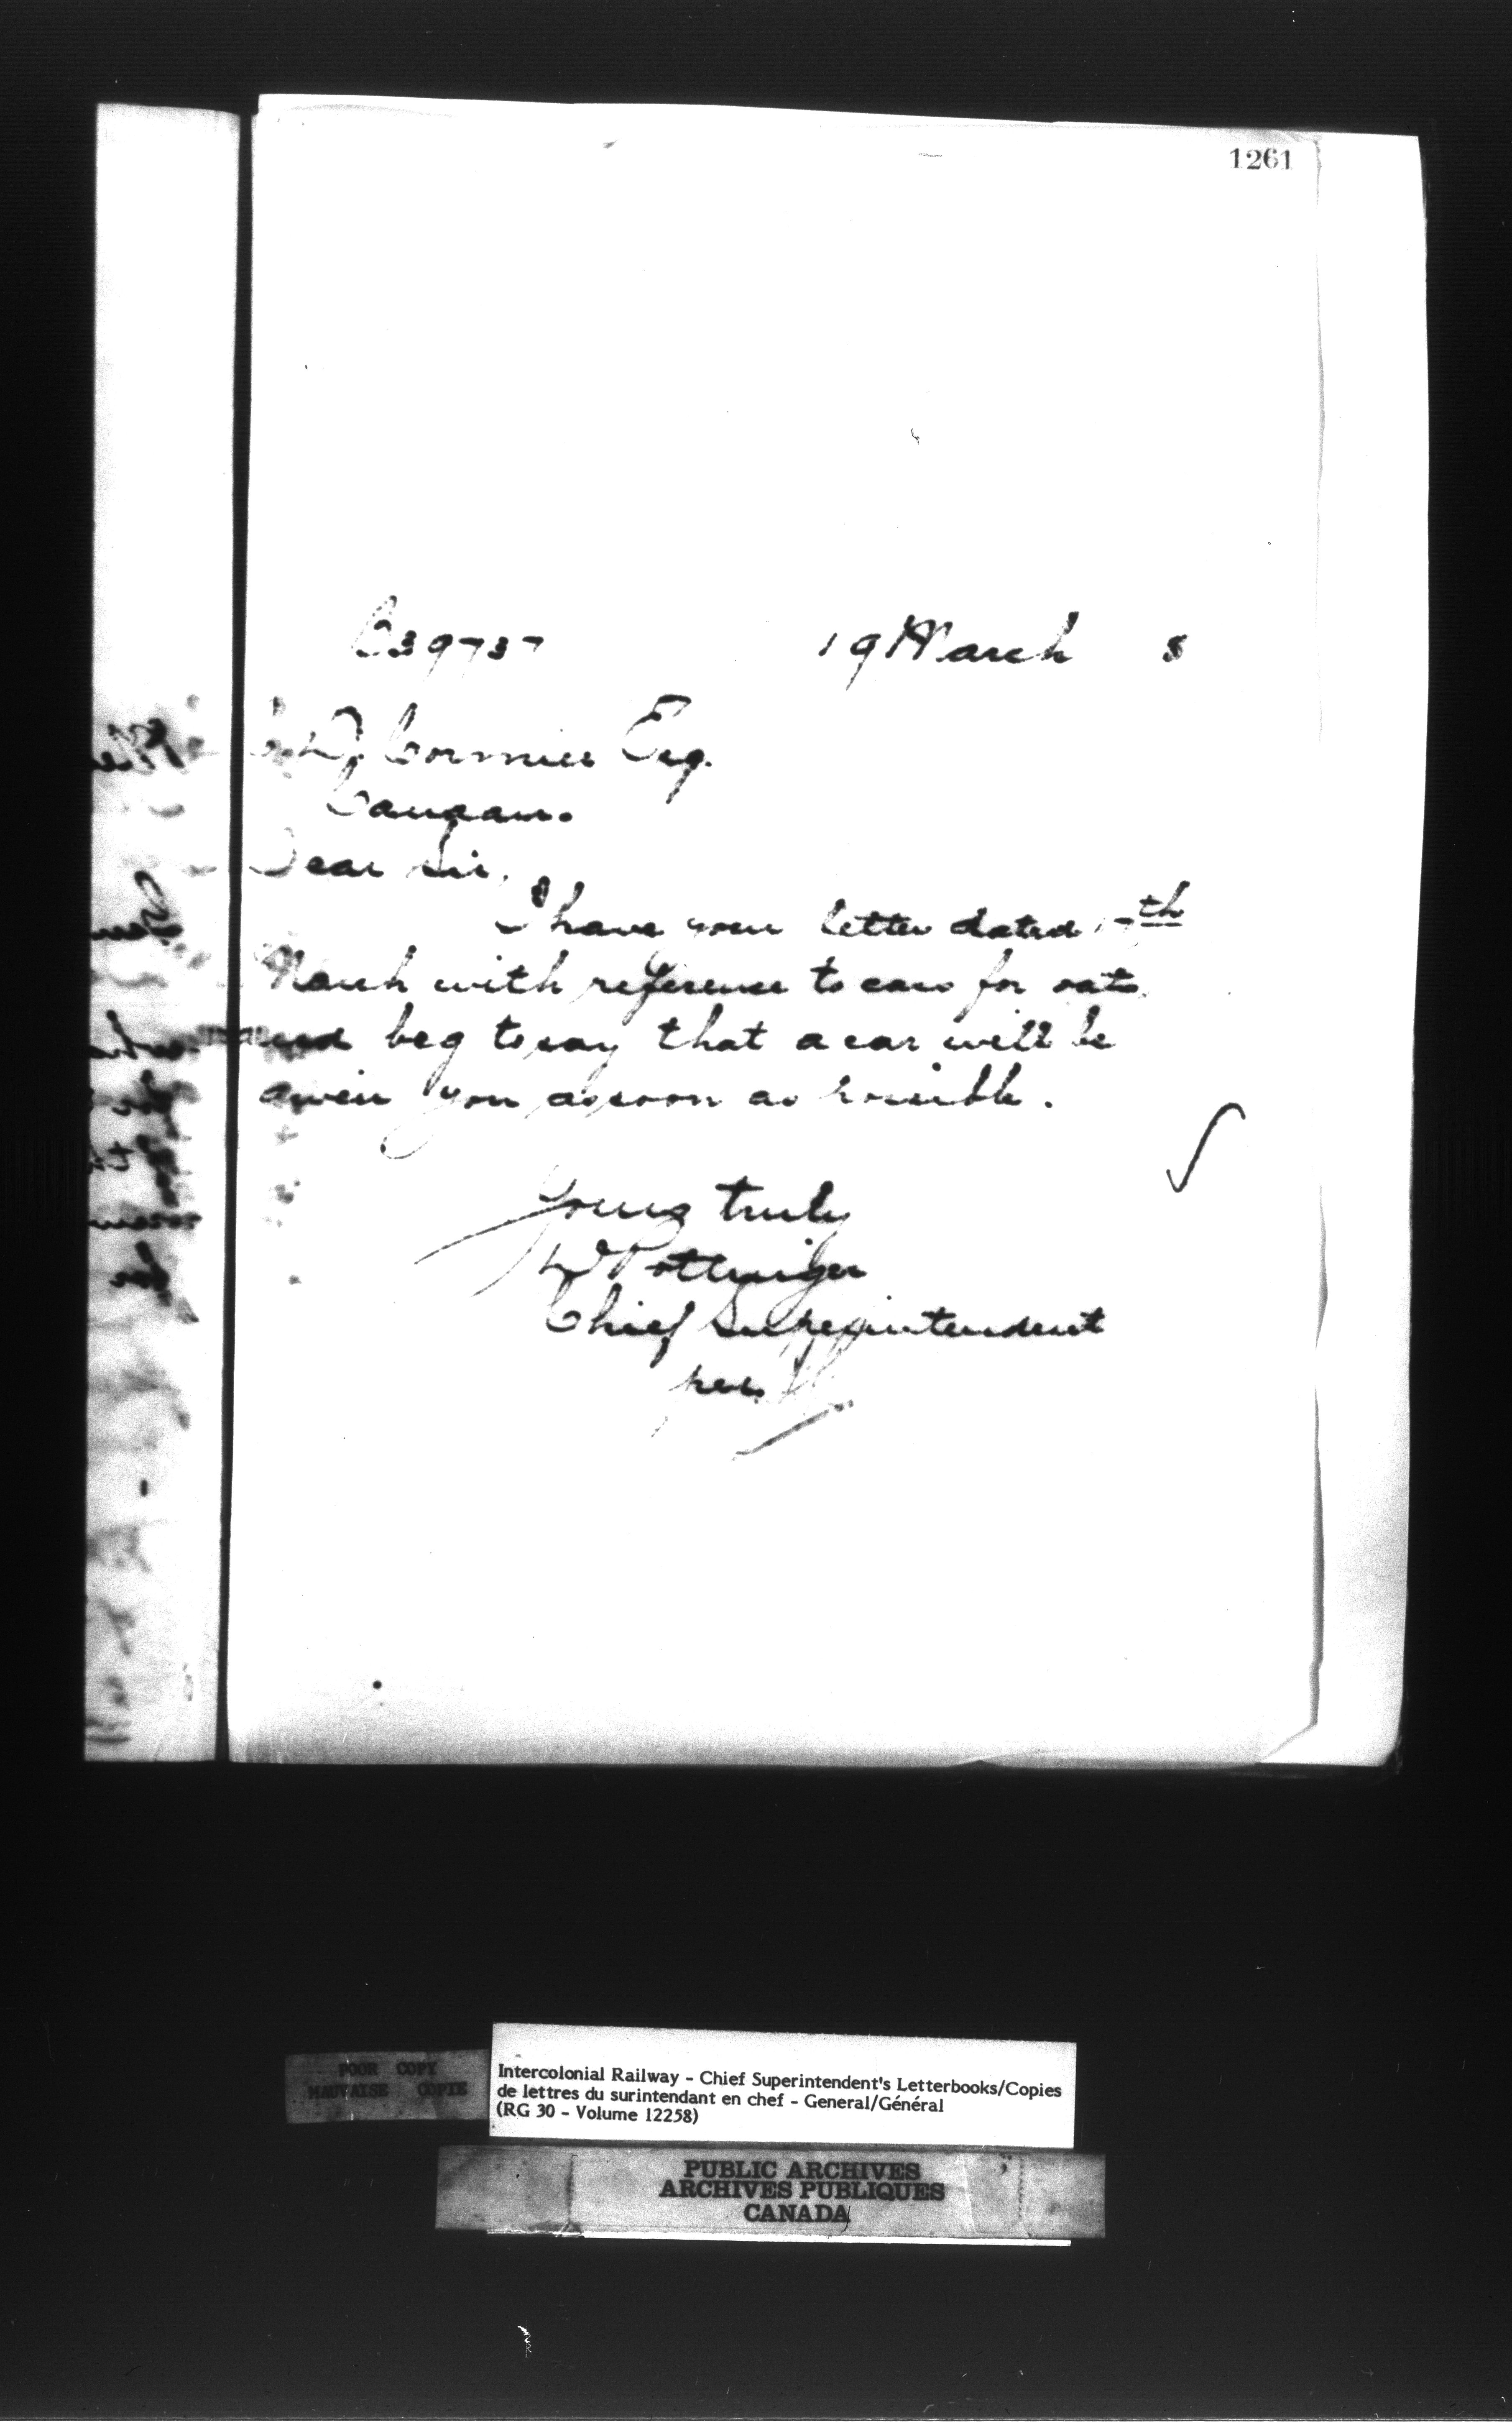 1261
C39737 19 March 8
Cormier Esq.
Dear Sir,
I have your letter dated 17th
March with reference to cars for oats
and beg to say that a car will be
given you as soon as possible.
Yours truly
D Pottinger
Chief Superintendent
per
POOR COPY
MAUVAISE COPIE
Intercolonial Railway - Chief Superintendent's Letterbooks/Copies
de lettres du surintendant en chef - General/Général
(RG 30 - Volume 12258)
PUBLIC ARCHIVES
ARCHIVES PUBLIQUES
CANADA